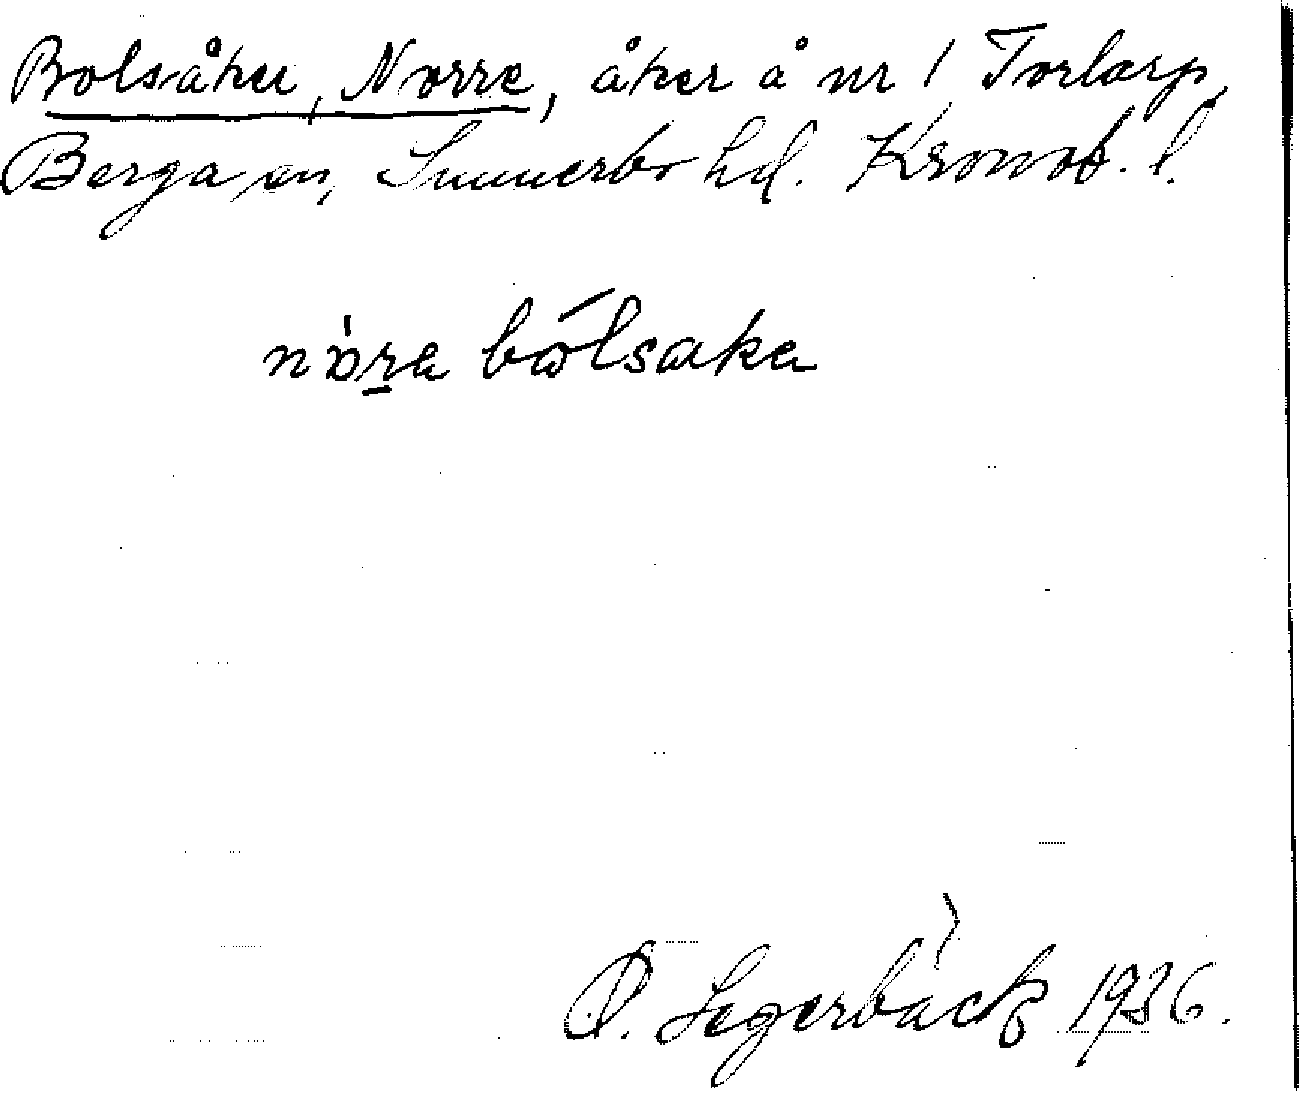 Bolsåker, Norre, åker å nr 1 Torlarp,
Berga sn, Sunnerbo hd. Kronob. l.
nöra bólsaka
O. Segerbäck 1936.